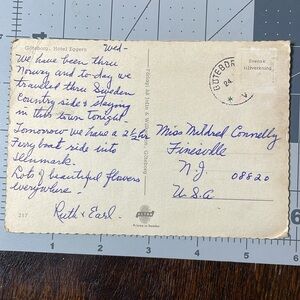 Göteborg. Hotel Eggers
Wed-
We have been thru
Norway and to-day we
travelled thru Sweden
Country side & staying
in this town tonight
Tomorrow we have a 2½ hr
Ferry boat ride into
Denmark.
Lots of beautiful flowers
everywhere.
Ruth & Earl.
217
Svensk
tillverkning
GÖTEBOR
Miss Mildred Connelly
Finesville
N.J. 08820
U.S.A.
Printed in Sweden
1
2
3
4
5
6